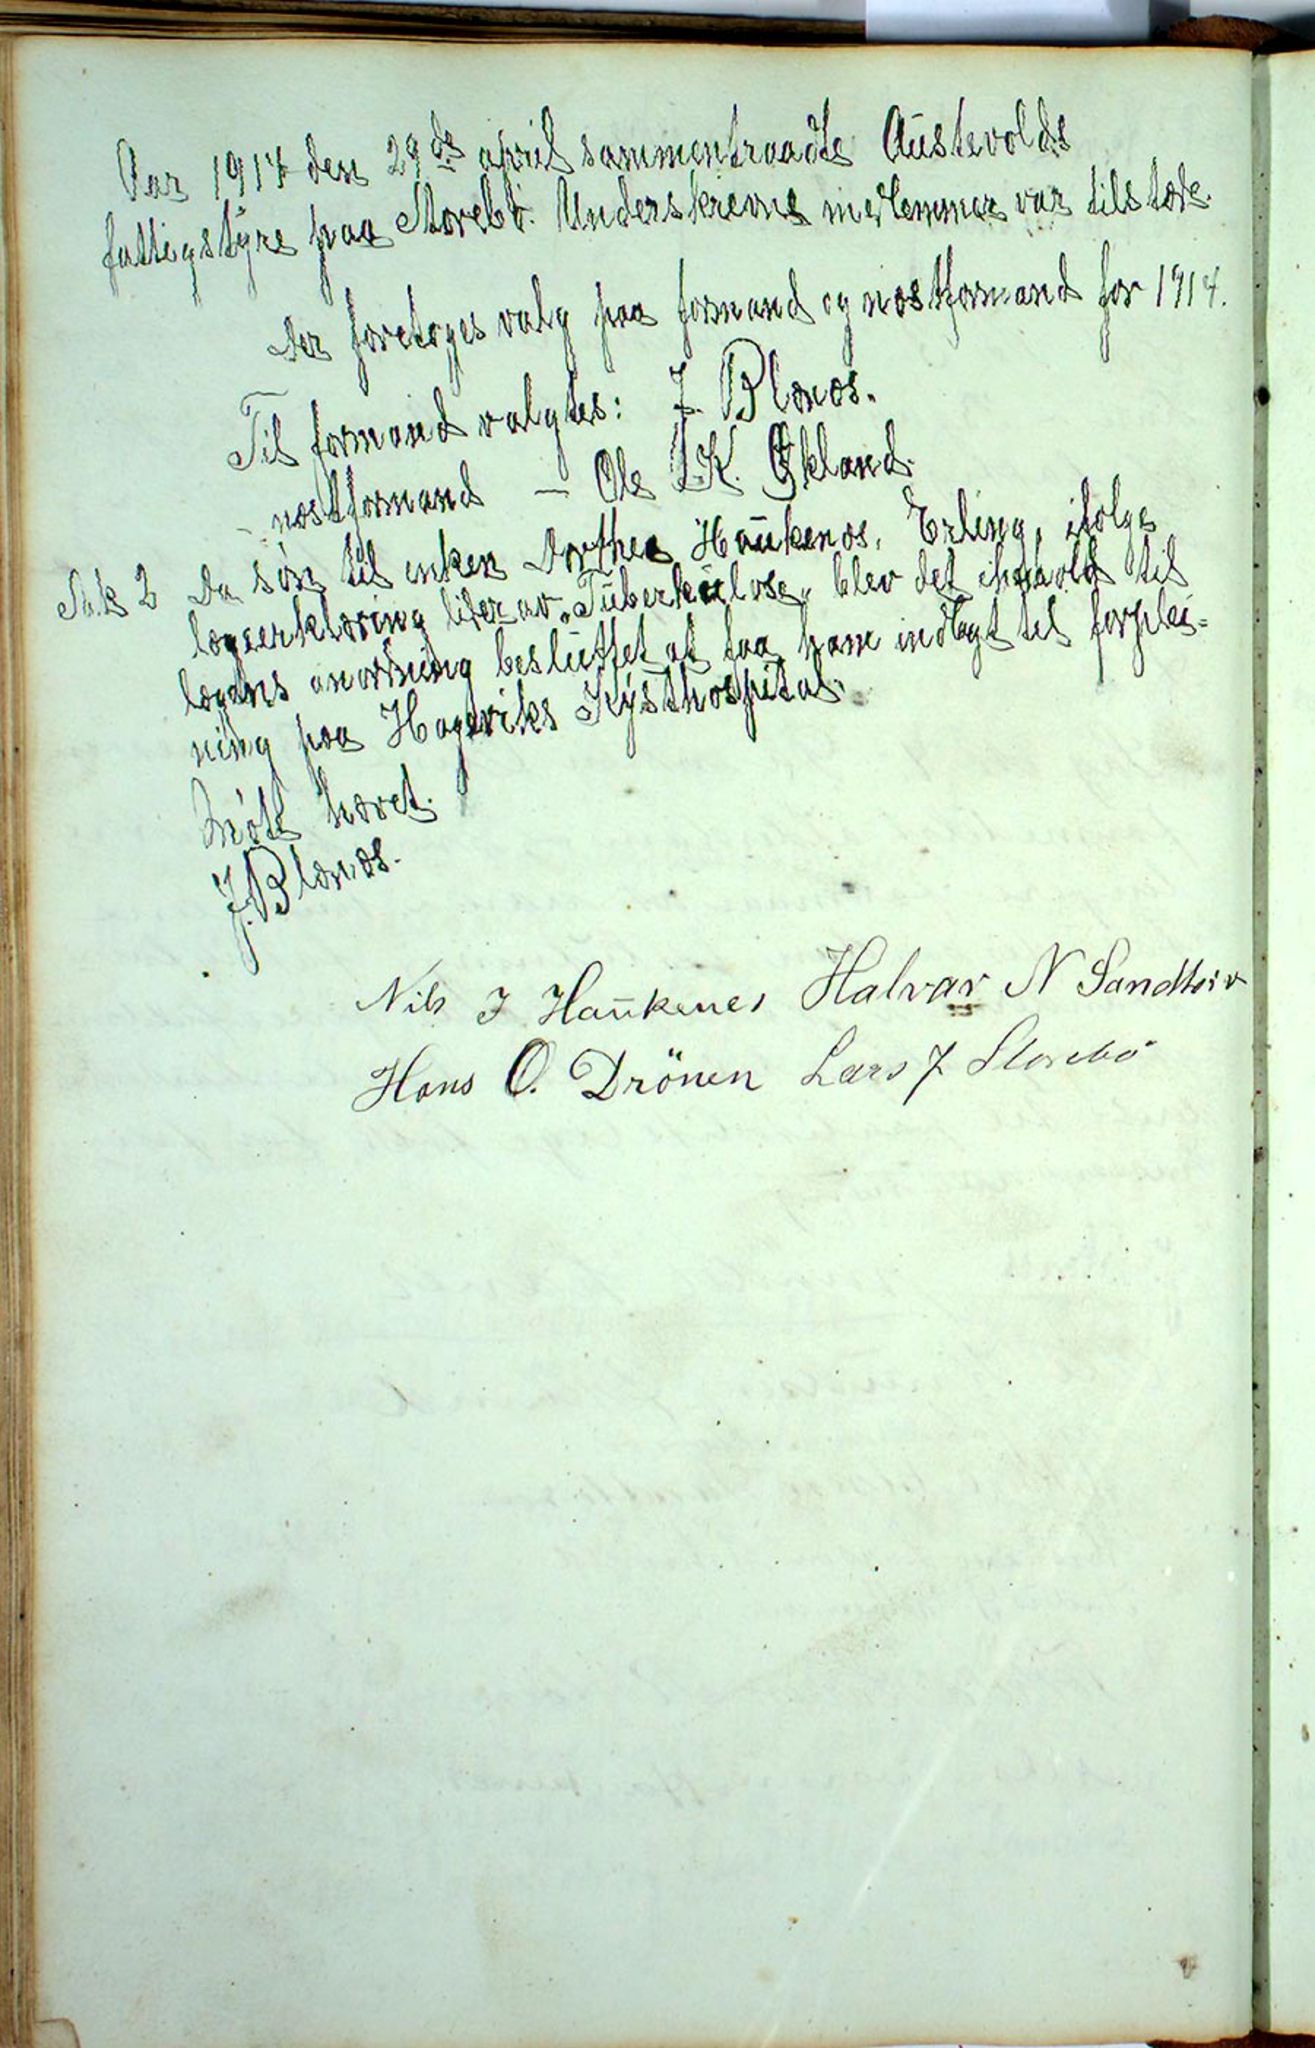 Aar 1914 den 29de april sammentraadte Austevolds
fattigstyre paa Storebö. Underskrevne medlemmer var tilstæde.
Der foretoges valg paa formand og næstformand for 1914.
Til formand valgtes: J. Blænæs.
- næstformand — Ole K. Økland.
Sak 2 Da søn til enken Dorthea Haukenæs, Erling, ifølge
lægeerklæring lider av "Tuberkulose" blev det i henhold til
lægens anordning besluttet at faa ham indlagt til forplei-
ning paa Hageviks Kysthospital.
Møte hævet.
J. Blænæs.
Nils J Haukenes Halvar N Sandtorv
Hans O. Drönen Lars J Storebö